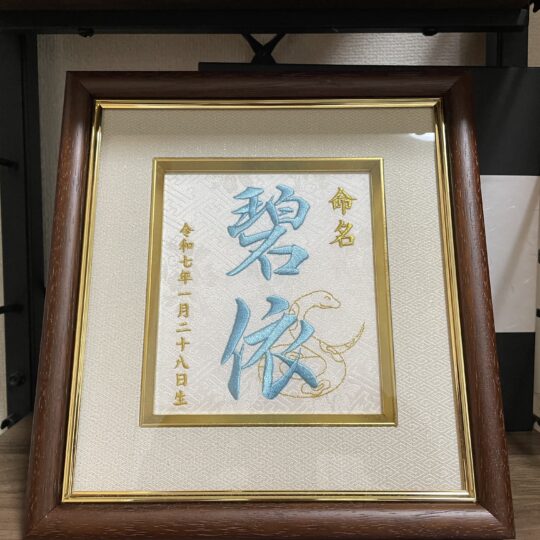 命名
碧依
令和七年一月二十八日生